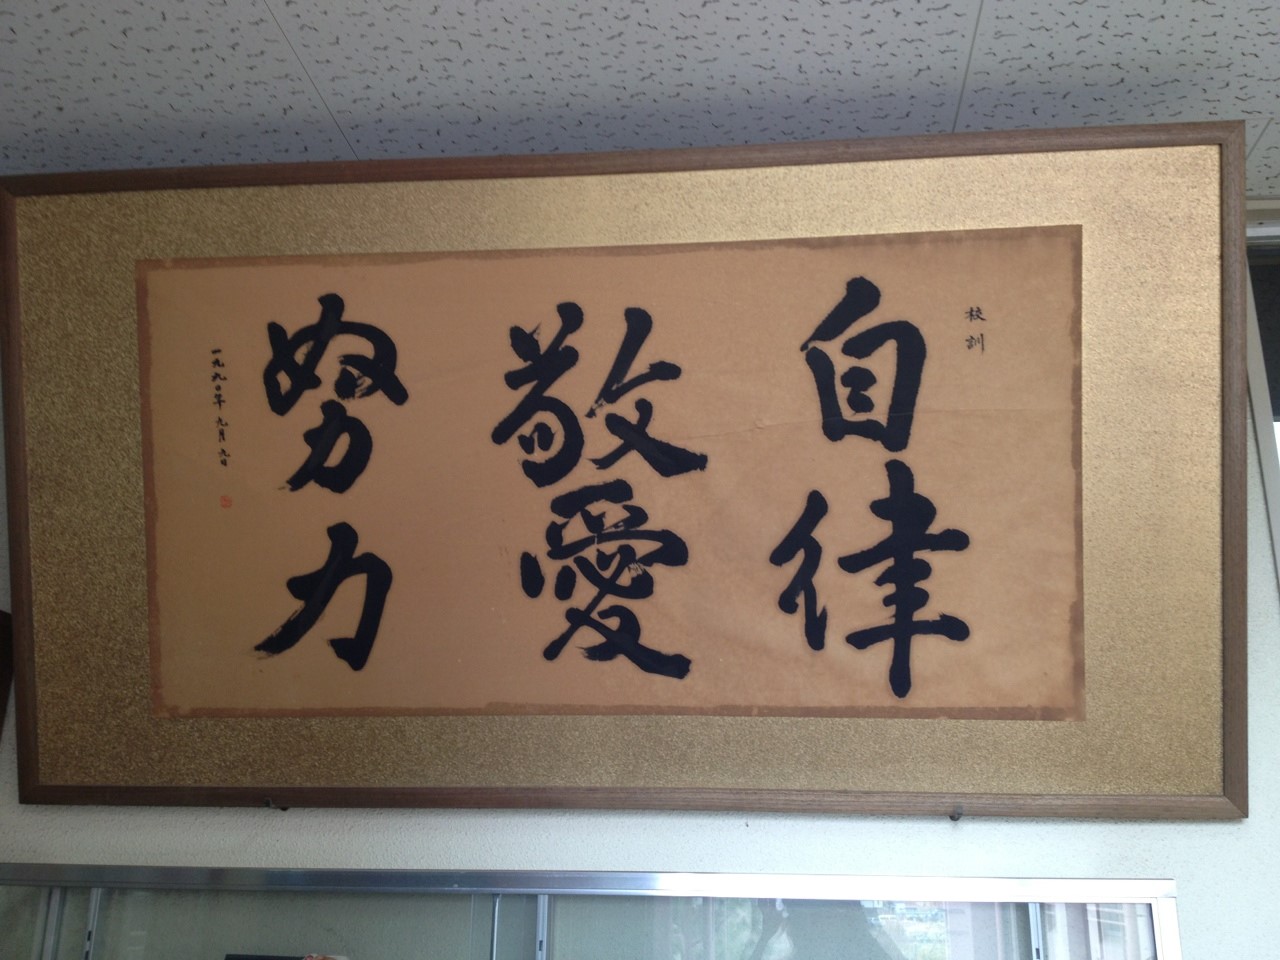 校訓
自律
敬愛
努力
一九九〇年九月九日